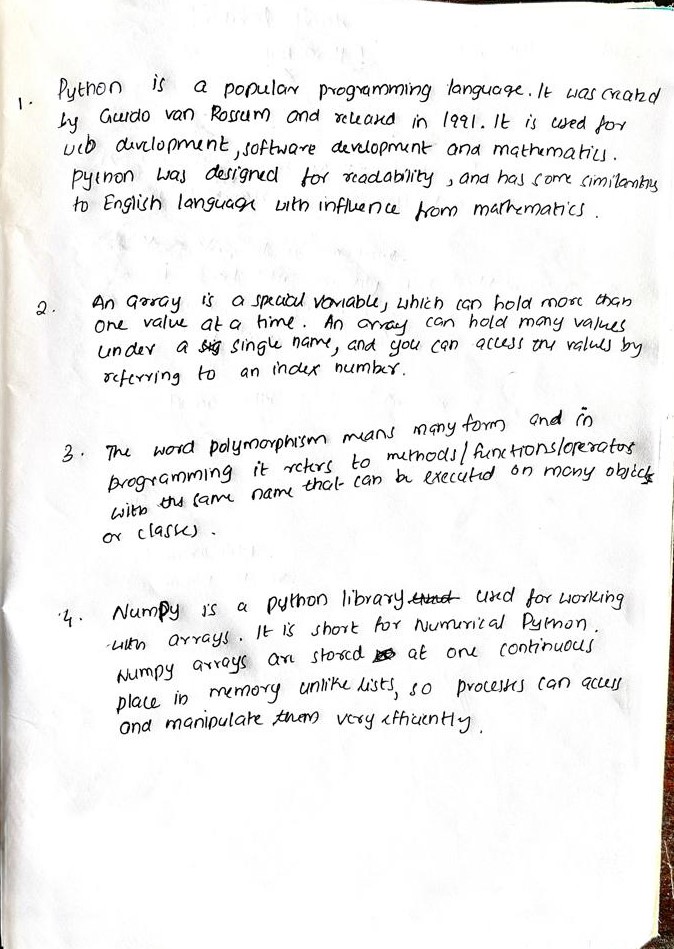 1. Python is a popular programming language. It was created
by Guido van Rossum and released in 1991. It is used for
web development, software development and mathematics.
Python was designed for readability, and has some similarities
to English language with influence from mathematics.
2. An array is a special variable, which can hold more than
one value at a time. An array can hold many values
under a single name, and you can access the values by
referring to an index number.
3. The word polymorphism means many form and in
programming it refers to methods/functions/operators
with the same name that can be executed on many objects
or classes.
4. Numpy is a python library used for working
with arrays. It is short for Numerical Python.
Numpy arrays are stored at one continuous
place in memory unlike lists, so processes can access
and manipulate them very efficiently.